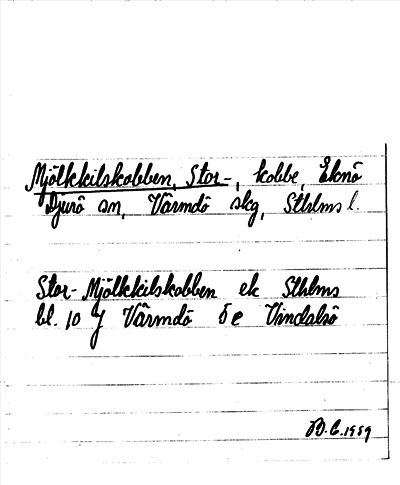 Mjölkkilskobben, Stor-, kobbe, Eknö
Djurö sn, Värmdö skg, Sthlms l.
Stor-Mjölkkilskobben ek Sthlms
bl. 10 J Värmdö 5 e Vindalsö
B.C. 1959